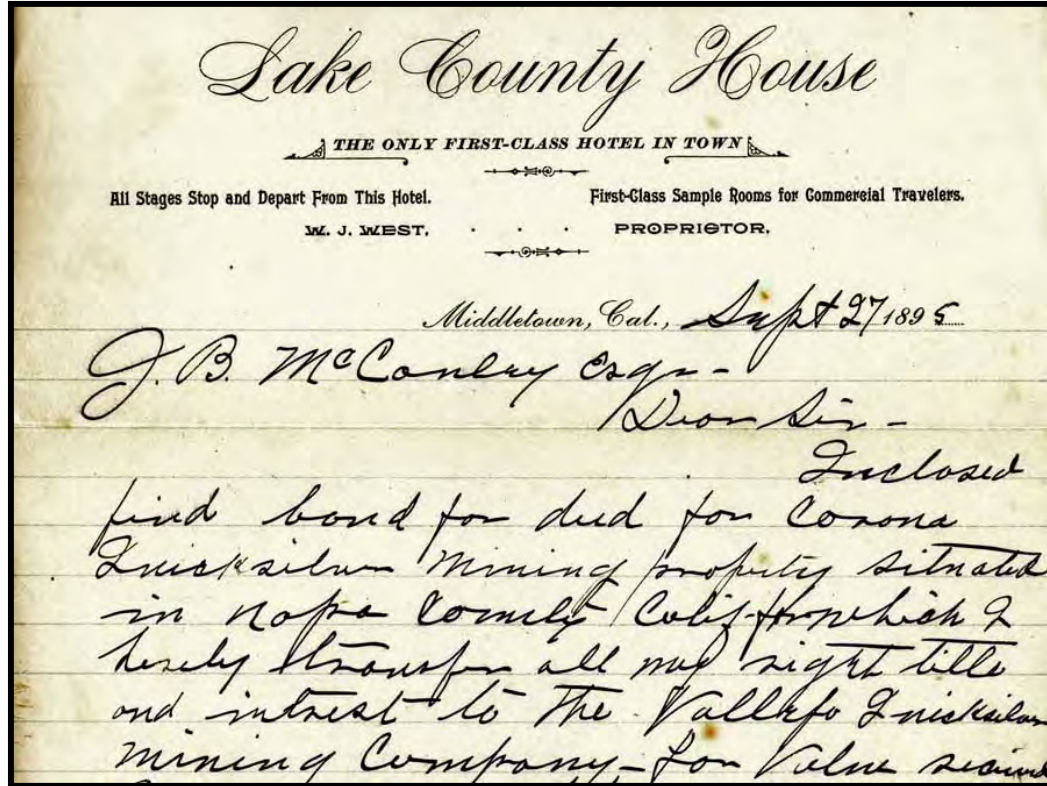 Lake County House
THE ONLY FIRST-CLASS HOTEL IN TOWN
All Stages Stop and Depart From This Hotel. First-Class Sample Rooms for Commercial Travelers.
W. J. WEST, . . . PROPRIETOR.
Middletown, Cal., Sept 27 1895
J. B. McCauley Esqr-
Dear Sir -
Inclosed
find bond for deed for Corona
Quicksilver Mining property situated
in Napa County Calif for which I
hereby transfer all my right title
and intrest to The Vallejo Quicksilver
Mining Company - for Value